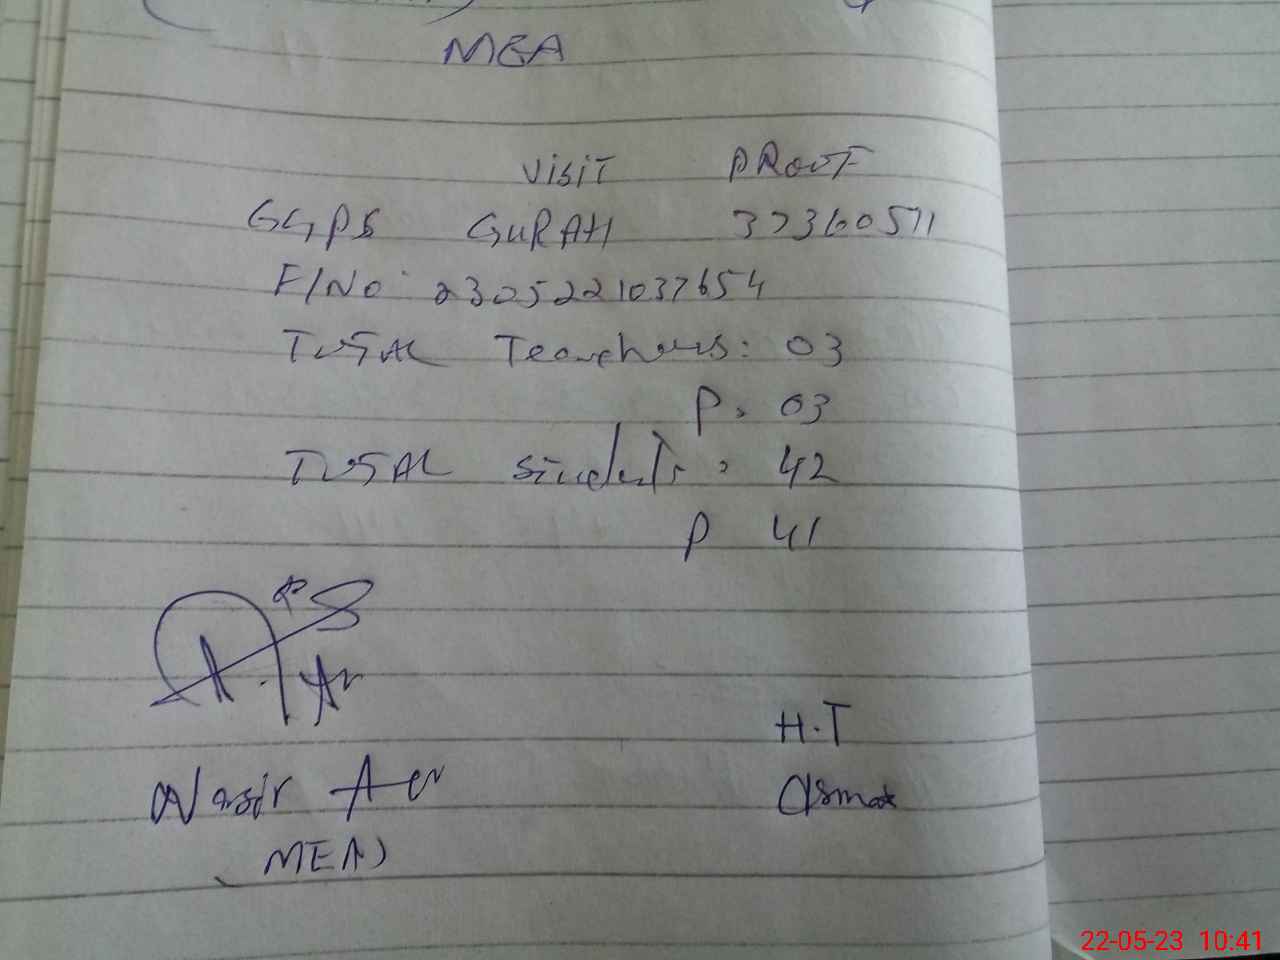 MEA
VISIT PROOF
GGPS GURAH 37360511
F/NO 2305221037654
TOTAL Teachers: 03
P. 03
TOTAL Students, 42
P 41
H.T
Nasir
Asmat
(MEA)
22-05-23 10:41